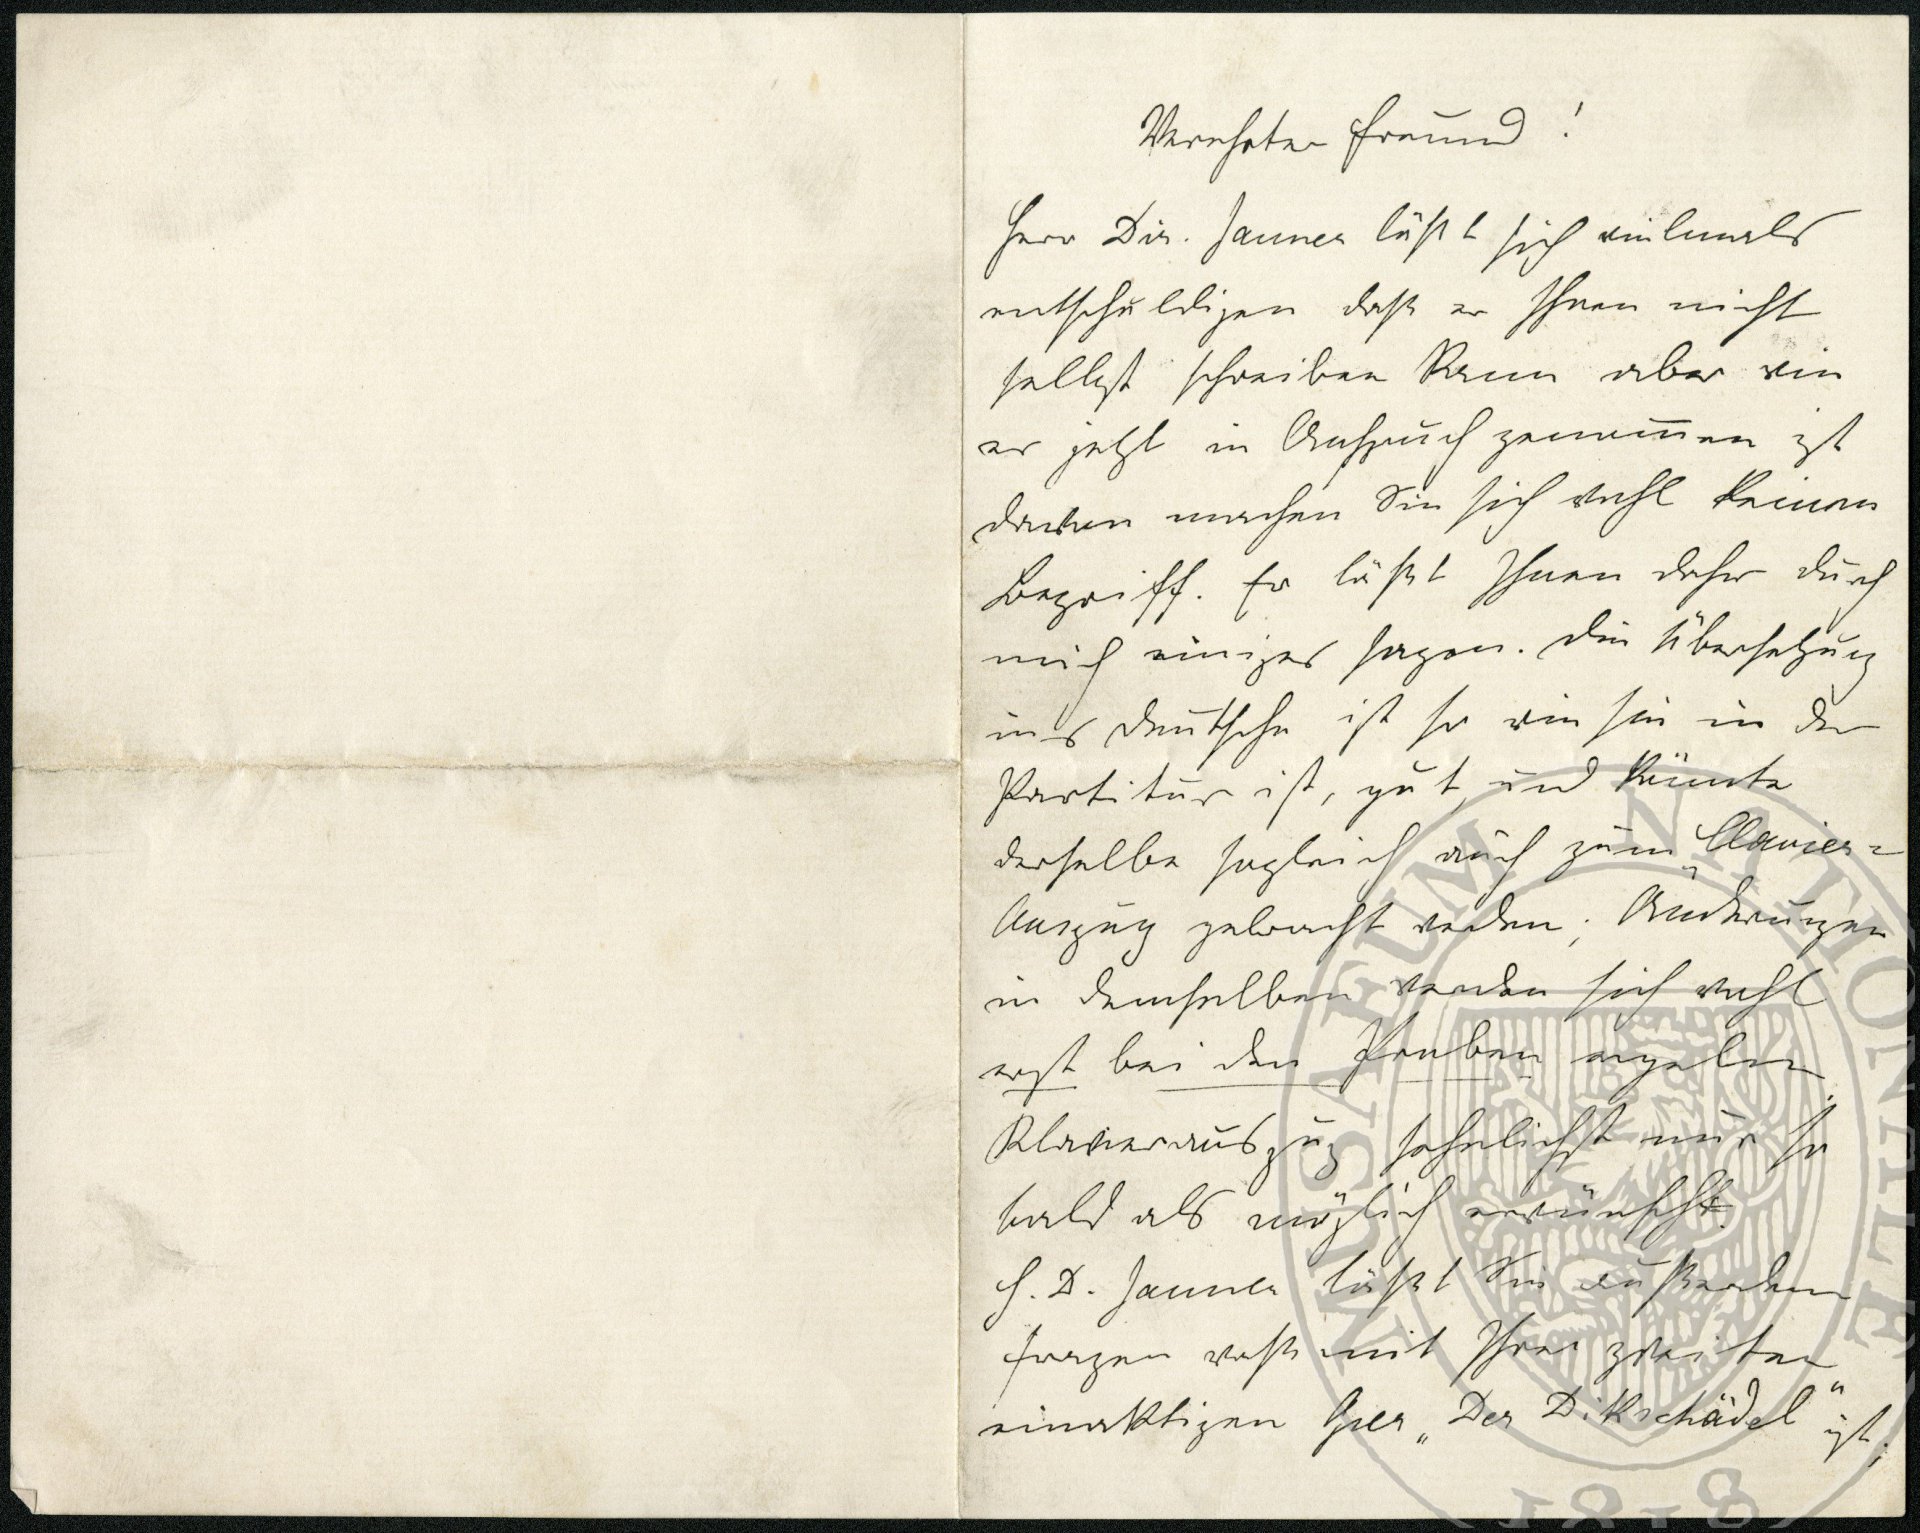 Verehrter Freund!
Herr Dir. Jauner läßt sich vielmals
entschuldigen daß er Ihnen nicht
selbst schreiben kann aber wie
er jetzt in Anspruch genom̅en ist
davon machen Sie sich wohl keinen
Begriff. Er läßt Ihnen daher durch
mich einiges sagen. Die Übersetzung
ins deutsche ist so wie sie in der
Partitur ist, gut, und könnte
derselbe sogleich auch zum Clavier=
Auszug gebracht werden; Änderungen
in demselben werden sich wohl
erst bei den Proben ergeben.
Klavierauszug sehnlichst nur so
bald als möglich erwünscht.
H. D. Jauner läßt Sie außerdem
fragen was mit Ihrer zweiten
einaktigen Oper „Der Dikschädel“ ist;
MUSAEUM NATIONALE
1818